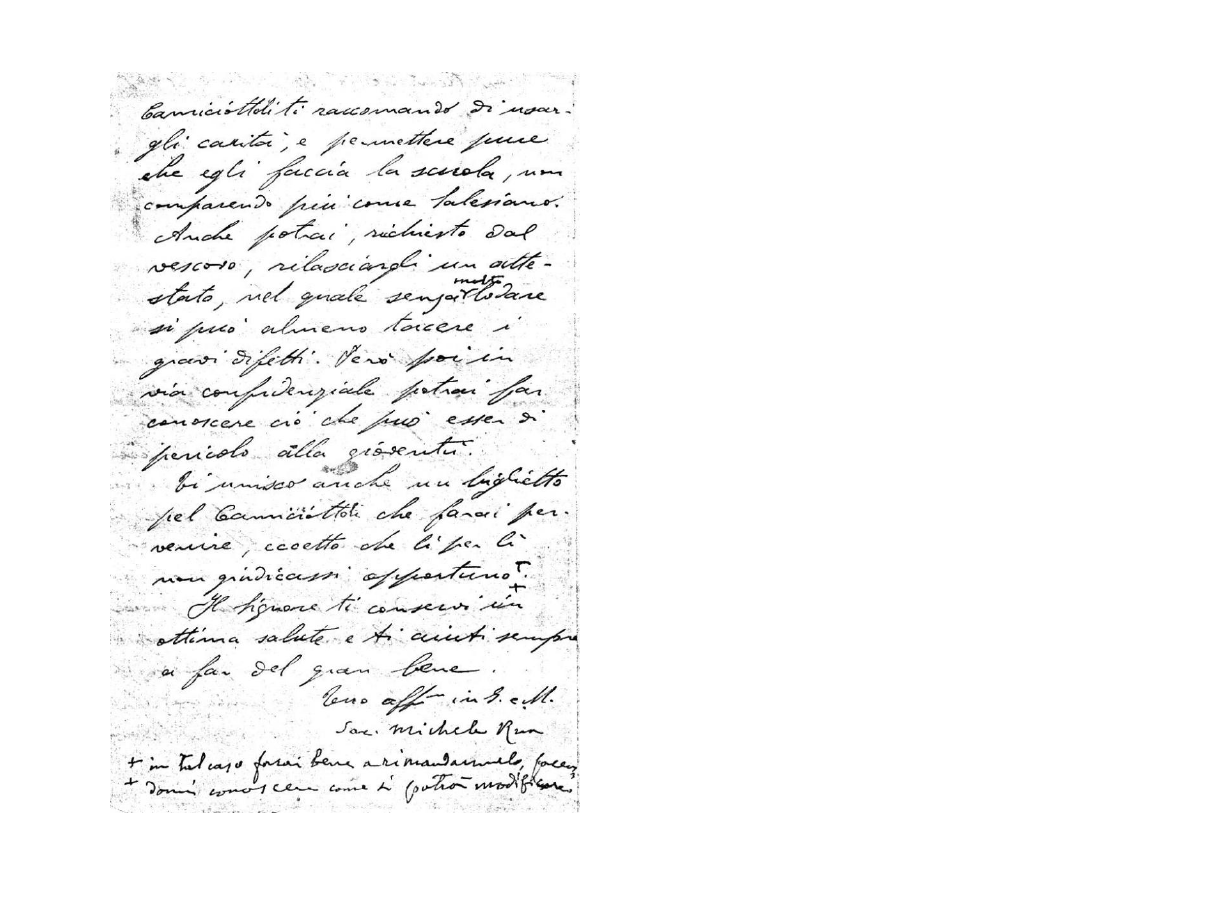 Camiciottoli ti raccomando di usar-
gli carità, e permettere pure
che egli faccia la scuola, non
comparendo più come Salesiano.
Anche potrai, richiesto dal
vescovo, rilasciargli un atte-
stato, nel quale senza molto lodare
si può almeno tacere i
gravi difetti. Però poi in
via confidenziale potrai far
conoscere ciò che può esser di
pericolo alla gioventù.
Ti unisco anche un biglietto
pel Camiciottoli che farai per-
venire, eccetto che lì per lì
non giudicassi opportuno +.
Il Signore ti conservi in
ottima salute e ti aiuti sempre
a far del gran bene.
Tuo aff.mo in G. e M.
Sac. Michele Rua
+ in tal caso farai bene a rimandarmelo, facen
+ domi conoscere come si potrà modificare